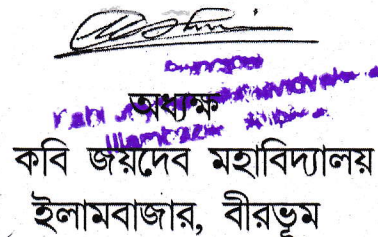 অধ্যক্ষ
কবি জয়দেব মহাবিদ্যালয়
ইলামবাজার, বীরভূম